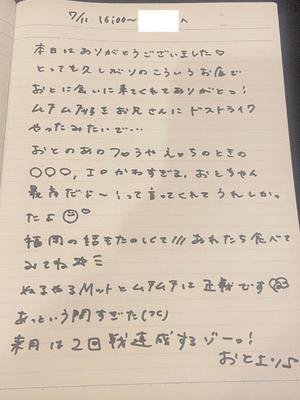 7/11 16:00〜 へ
本日はありがとうございました♡
とっても久しぶりのこういうお店で
おとに会いに来てくれてありがとっ!
ムチムチ好きなお兄さんにドストライク
やったみたいで…
おとのあのフロうやえっちのときの
○○○, エロかわすぎる, おとちゃん
最高だよ〜!って言ってくれてうれしかっ
たよ
福岡の話もたのしくて/// あれたち食べて
みてね
ぬるぬるMットとムチムチは正義です
あっという間すぎた
来月は2回戦達成するゾーっ!
おとより